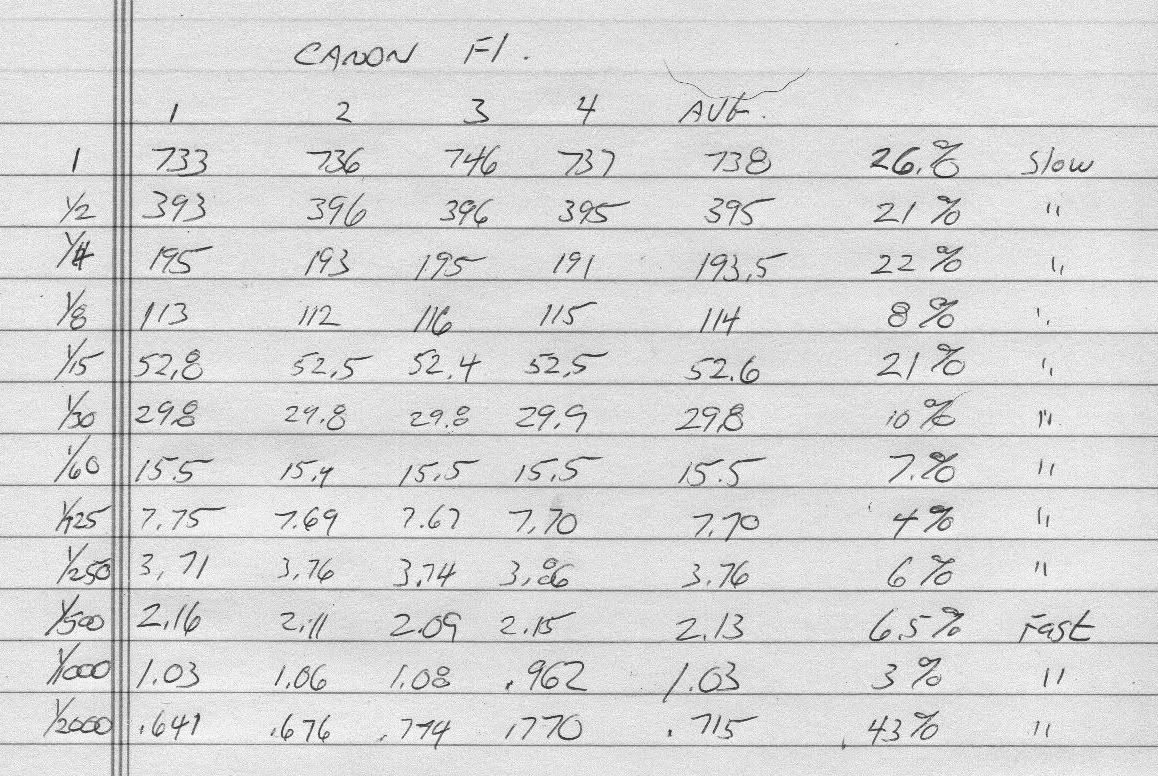 CANON F1.
1 2 3 4 AVE.
1 733 736 746 737 738 26.% Slow
1/2 393 396 396 395 395 21 % "
1/4 195 193 195 191 193.5 22 % "
1/8 113 112 116 115 114 8 % "
1/15 52.8 52.5 52.4 52.5 52.6 21 % "
1/30 29.8 29.8 29.8 29.9 29.8 10 % "
1/60 15.5 15.4 15.5 15.5 15.5 7.% "
1/125 7.75 7.69 7.67 7.70 7.70 4% "
1/250 3.71 3.76 3.74 3.86 3.76 6% "
1/500 2.16 2.11 2.09 2.15 2.13 6.5% Fast
1/1000 1.03 1.06 1.08 .962 1.03 3 % "
1/2000 .641 .676 .774 .770 .715 43% "